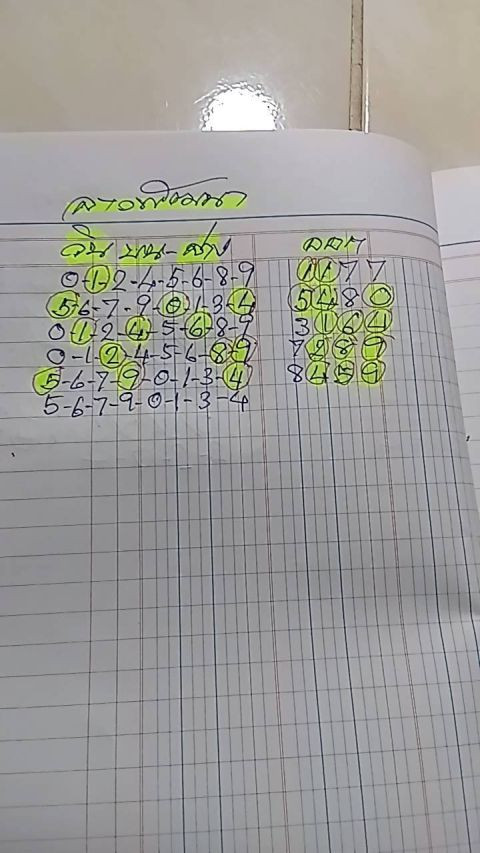 ลาวพัฒนา
วิ่น บน - ล่าง ออก
0-1-2-4-5-6-8-9 1177
5-6-7-9-0-1-3-4 5480
0 1-2-4-5-6-8-9 3164
0-1-2-4-5-6-8-9 7289
5-6-7-9-0-1-3-4 8459
5-6-7-9-0-1-3-4